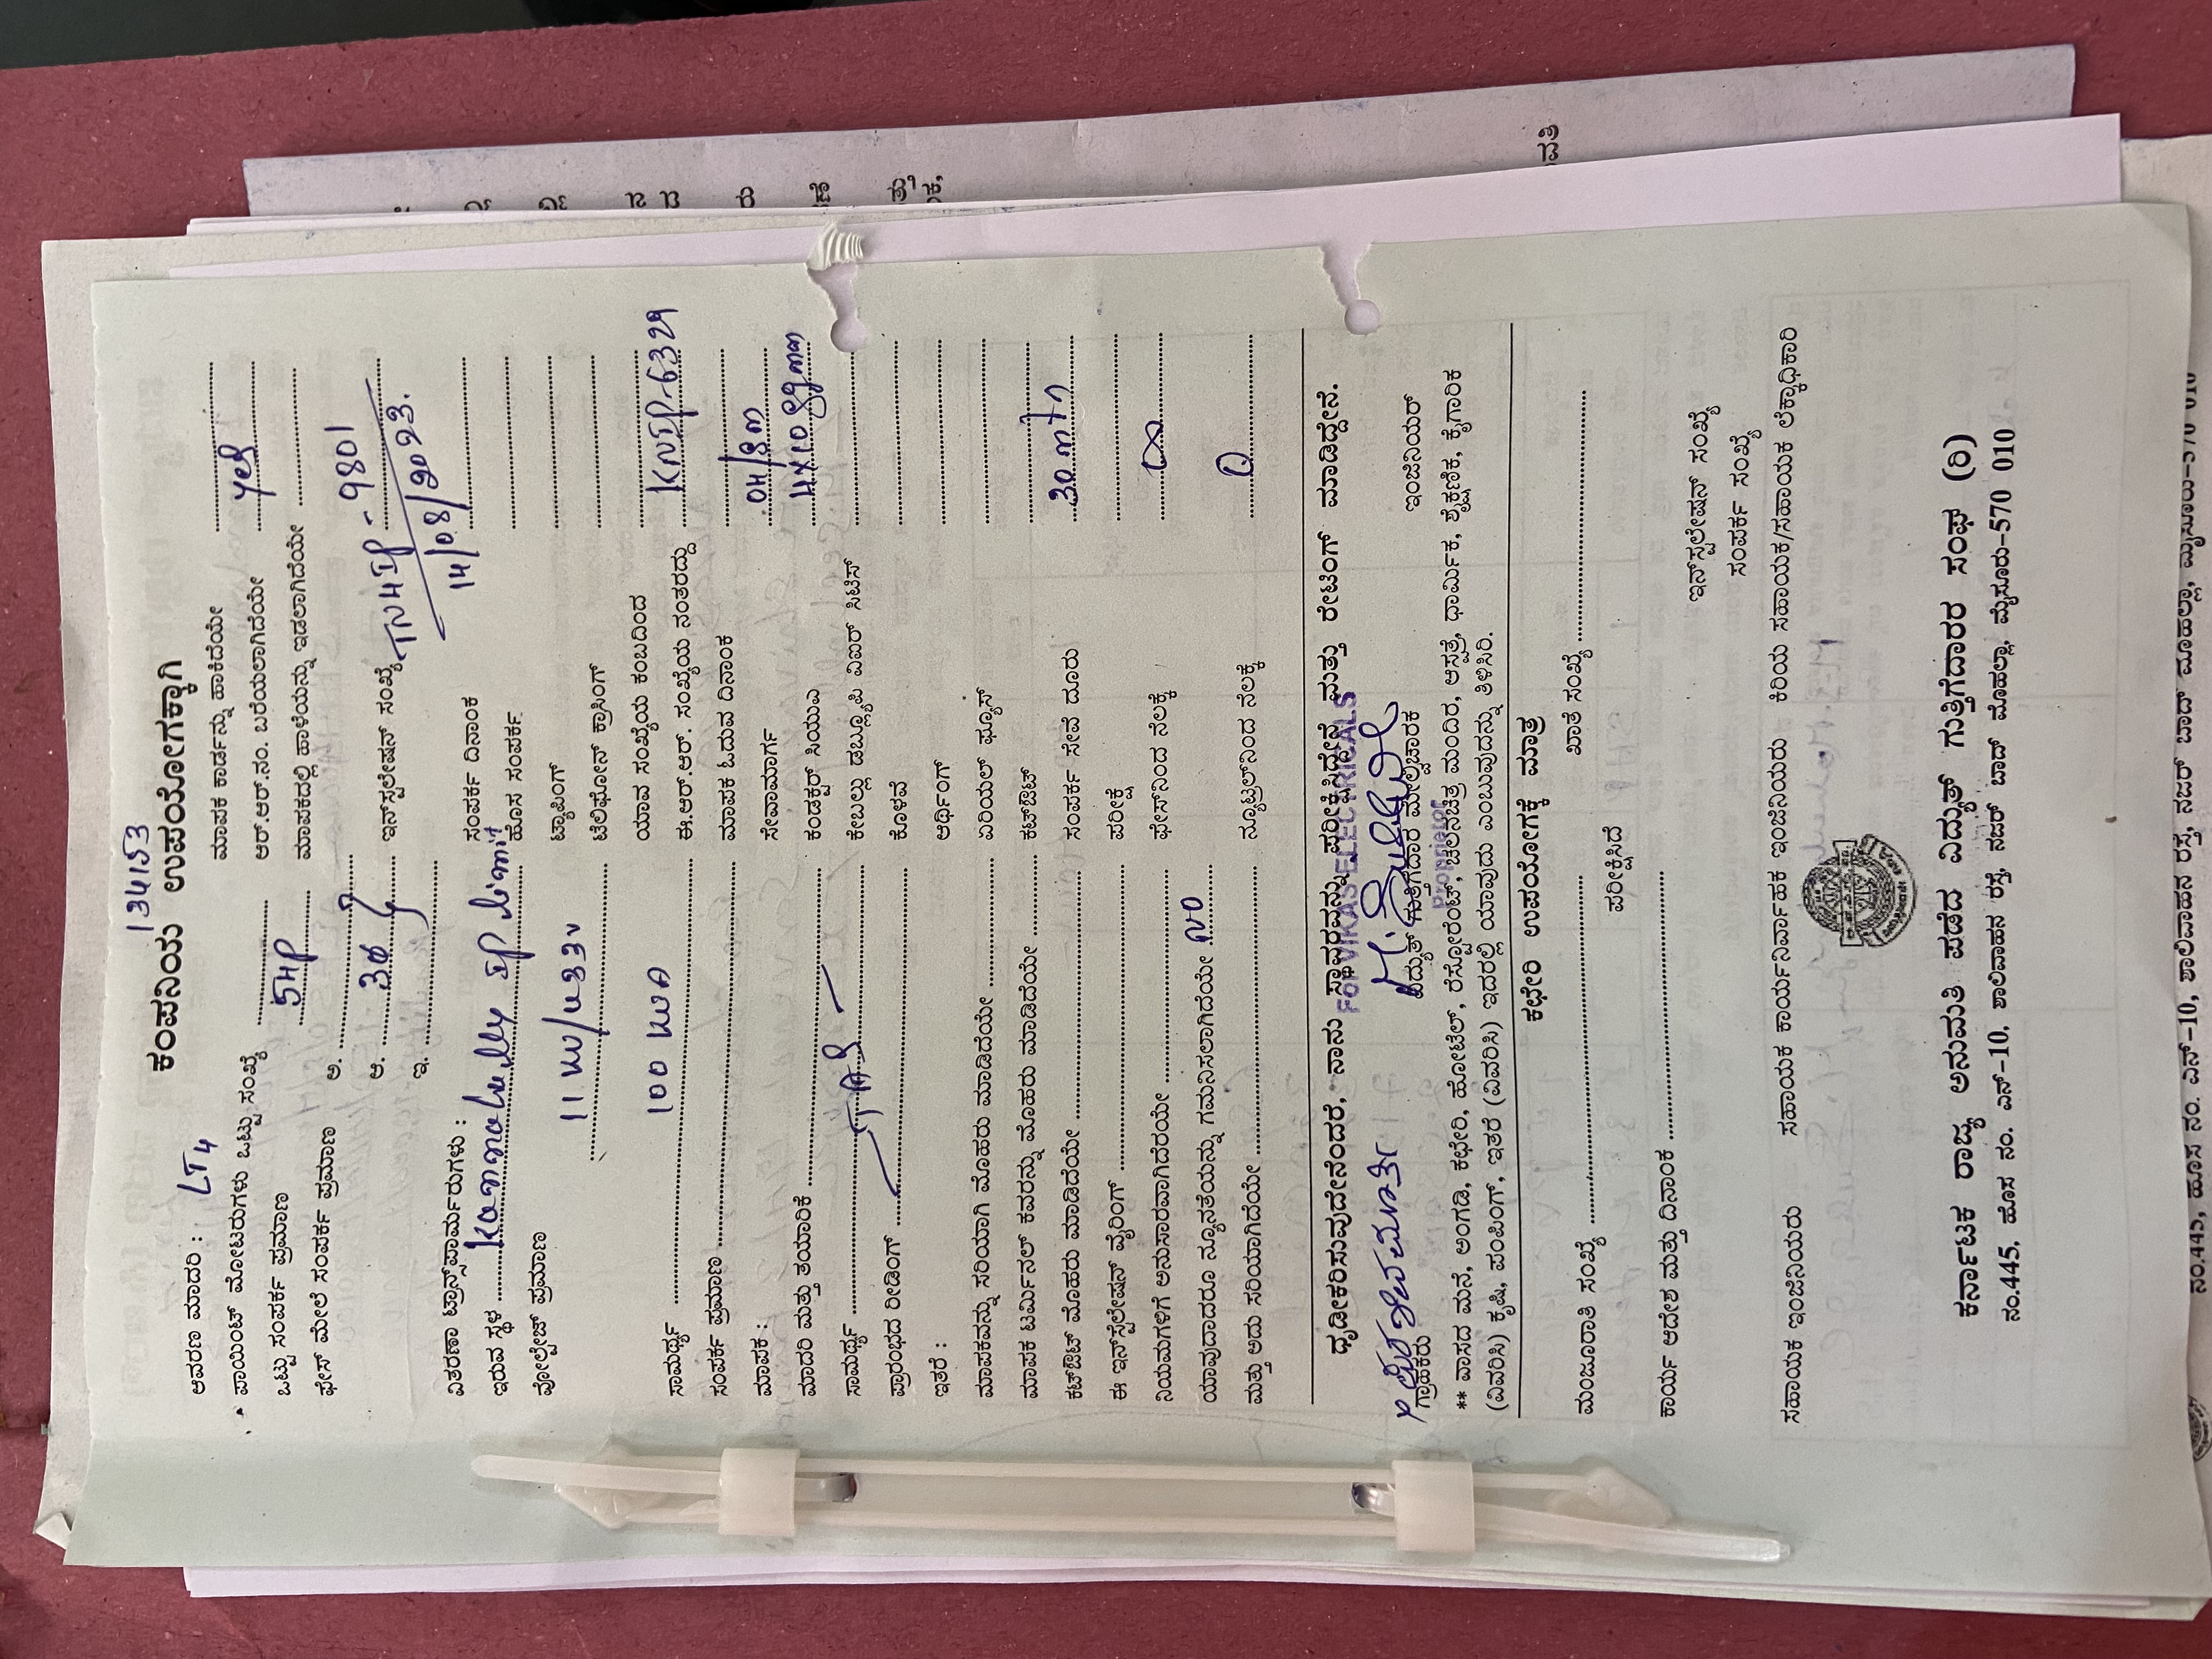 134153
ಕಂಪನಿಯ ಉಪಯೋಗಕ್ಕಾಗಿ
ಆವರಣ ಮಾದರಿ : LT4
ಮಾಪಕ ಕಾರ್ಡನ್ನು ಹಾಕಿದೆಯೇ
ಪಾಯಿಂಟ್ ಮೋಟರುಗಳು ಒಟ್ಟು ಸಂಖ್ಯೆ
ಆರ್.ಆರ್.ನಂ. ಬರೆಯಲಾಗಿದೆಯೇ yes
ಒಟ್ಟು ಸಂಪರ್ಕ ಪ್ರಮಾಣ 5HP
ಮಾಪಕದಲ್ಲಿ ಹಾಳೆಯನ್ನು ಇಡಲಾಗಿದೆಯೇ
ಫೇಸ್ ಮೇಲೆ ಸಂಪರ್ಕ ಪ್ರಮಾಣ ಅ.
ಆ. 3Ø
ಇನ್‌ಸ್ಟಲೇಷನ್ ಸಂಖ್ಯೆ TN4IP - 9801
ಇ.
14/08/2023.
ವಿತರಣಾ ಟ್ರಾನ್ಸ್‌ಫಾರ್ಮರುಗಳು :
ಸಂಪರ್ಕ ದಿನಾಂಕ
ಇರುವ ಸ್ಥಳ IP limit
ಹೊಸ ಸಂಪರ್ಕ
ವೋಲ್ಟೇಜ್ ಪ್ರಮಾಣ
ಟ್ಯಾಪಿಂಗ್
11 KV/433V
ಟೆಲಿಫೋನ್ ಕ್ರಾಸಿಂಗ್
ಯಾವ ಸಂಖ್ಯೆಯ ಕಂಬದಿಂದ
ಸಾಮರ್ಥ್ಯ 100 KVA
ಈ.ಆರ್.ಆರ್. ಸಂಖ್ಯೆಯ ನಂತರದ್ದು KNIP-6329
ಸಂಪರ್ಕ ಪ್ರಮಾಣ
ಮಾಪಕ ಓದುವ ದಿನಾಂಕ
ಮಾಪಕ :
ಸೇವಾಮಾರ್ಗ
ಮಾದರಿ ಮತ್ತು ತಯಾರಿಕೆ
ಕಂಡಕ್ಟರ್ ಸಿಯುಎ 4X10
ಸಾಮರ್ಥ್ಯ TAS
ಕೇಬಲ್ಲು ಡಬ್ಲ್ಯೂಪಿ ವಿಐಆರ್ ಸಿಟಿಸ್
ಪ್ರಾರಂಭದ ರೀಡಿಂಗ್
ಕೊಳವೆ
ಇತರೆ :
ಅರ್ಥಿಂಗ್
ಮಾಪಕವನ್ನು ಸರಿಯಾಗಿ ಮೊಹರು ಮಾಡಿದೆಯೇ
ಏರಿಯಲ್ ಫ್ಯೂಸ್
ಮಾಪಕ ಟರ್ಮಿನಲ್ ಕವರನ್ನು ಮೊಹರು ಮಾಡಿದೆಯೇ
ಕಟ್‌ಔಟ್
ಕಟ್‌ಔಟ್ ಮೊಹರು ಮಾಡಿದೆಯೇ
ಸಂಪರ್ಕ ಸೇವೆ ದೂರು 30 mtr
ಈ ಇನ್‌ಸ್ಟಲೇಷನ್ ವೈರಿಂಗ್
ಪರೀಕ್ಷೆ
ನಿಯಮಗಳಿಗೆ ಅನುಸಾರವಾಗಿದೆಯೇ
ಫೇಸ್‌ನಿಂದ ನೆಲಕ್ಕೆ ∞
ಯಾವುದಾದರೂ ನ್ಯೂನತೆಯನ್ನು ಗಮನಿಸಲಾಗಿದೆಯೇ NO
ಮತ್ತು ಅದು ಸರಿಯಾಗಿದೆಯೇ
ನ್ಯೂಟ್ರಲ್‌ನಿಂದ ನೆಲಕ್ಕೆ 0
ಧೃಡೀಕರಿಸುವುದೇನೆಂದರೆ, ನಾನು ಸ್ಥಾವರವನ್ನು ಪರೀಕ್ಷಿಸಿದ್ದೇನೆ ಮತ್ತು ರೇಟಿಂಗ್ ಮಾಡಿದ್ದೇನೆ.
FOR VIKAS ELECTRICALS
ಗ್ರಾಹಕರು
ವಿದ್ಯುತ್ ಗುತ್ತಿಗೆದಾರ ಮೇಲ್ವಿಚಾರಕ
ಇಂಜಿನಿಯರ್
** ವಾಸದ ಮನೆ, ಅಂಗಡಿ, ಕಛೇರಿ, ಹೋಟೆಲ್, ರೆಸ್ಟೋರೆಂಟ್, ಚಲನಚಿತ್ರ ಮಂದಿರ, ಆಸ್ಪತ್ರೆ, ಧಾರ್ಮಿಕ, ಶೈಕ್ಷಣಿಕ, ಕೈಗಾರಿಕೆ
(ವಿವರಿಸಿ) ಕೃಷಿ, ಪಂಪಿಂಗ್, ಇತರೆ (ವಿವರಿಸಿ) ಇದರಲ್ಲಿ ಯಾವುದು ಎಂಬುವುದನ್ನು ತಿಳಿಸಿರಿ.
ಕಛೇರಿ ಉಪಯೋಗಕ್ಕೆ ಮಾತ್ರ
ಮಂಜೂರಾತಿ ಸಂಖ್ಯೆ
ಖಾತೆ ಸಂಖ್ಯೆ
ಪರೀಕ್ಷಿಸಿದೆ
ಕಾರ್ಯ ಆದೇಶ ಮತ್ತು ದಿನಾಂಕ
ಇನ್‌ಸ್ಟಲೇಷನ್ ಸಂಖ್ಯೆ
ಸಂಪರ್ಕ ಸಂಖ್ಯೆ
ಸಹಾಯಕ ಇಂಜಿನಿಯರು
ಸಹಾಯಕ ಕಾರ್ಯನಿರ್ವಾಹಕ ಇಂಜಿನಿಯರು
ಕಿರಿಯ ಸಹಾಯಕ/ಸಹಾಯಕ ಲೆಕ್ಕಾಧಿಕಾರಿ
ಕರ್ನಾಟಕ ರಾಜ್ಯ ಅನುಮತಿ ಪಡೆದ ವಿದ್ಯುತ್ ಗುತ್ತಿಗೆದಾರರ ಸಂಘ (ರಿ)
ನಂ.445, ಹೊಸ ನಂ. ಎನ್-10, ಶಾಲಿವಾಹನ ರಸ್ತೆ, ನಜರ್ ಬಾದ್ ಮೊಹಲ್ಲಾ, ಮೈಸೂರು-570 010
ನಂ.445, ಹೊಸ ನಂ. ಎನ್-10, ಶಾಲಿವಾಹನ ರಸ್ತೆ, ನಜರ್ ಬಾದ್ ಮೊಹಲ್ಲಾ, ಮೈಸೂರು-570 010